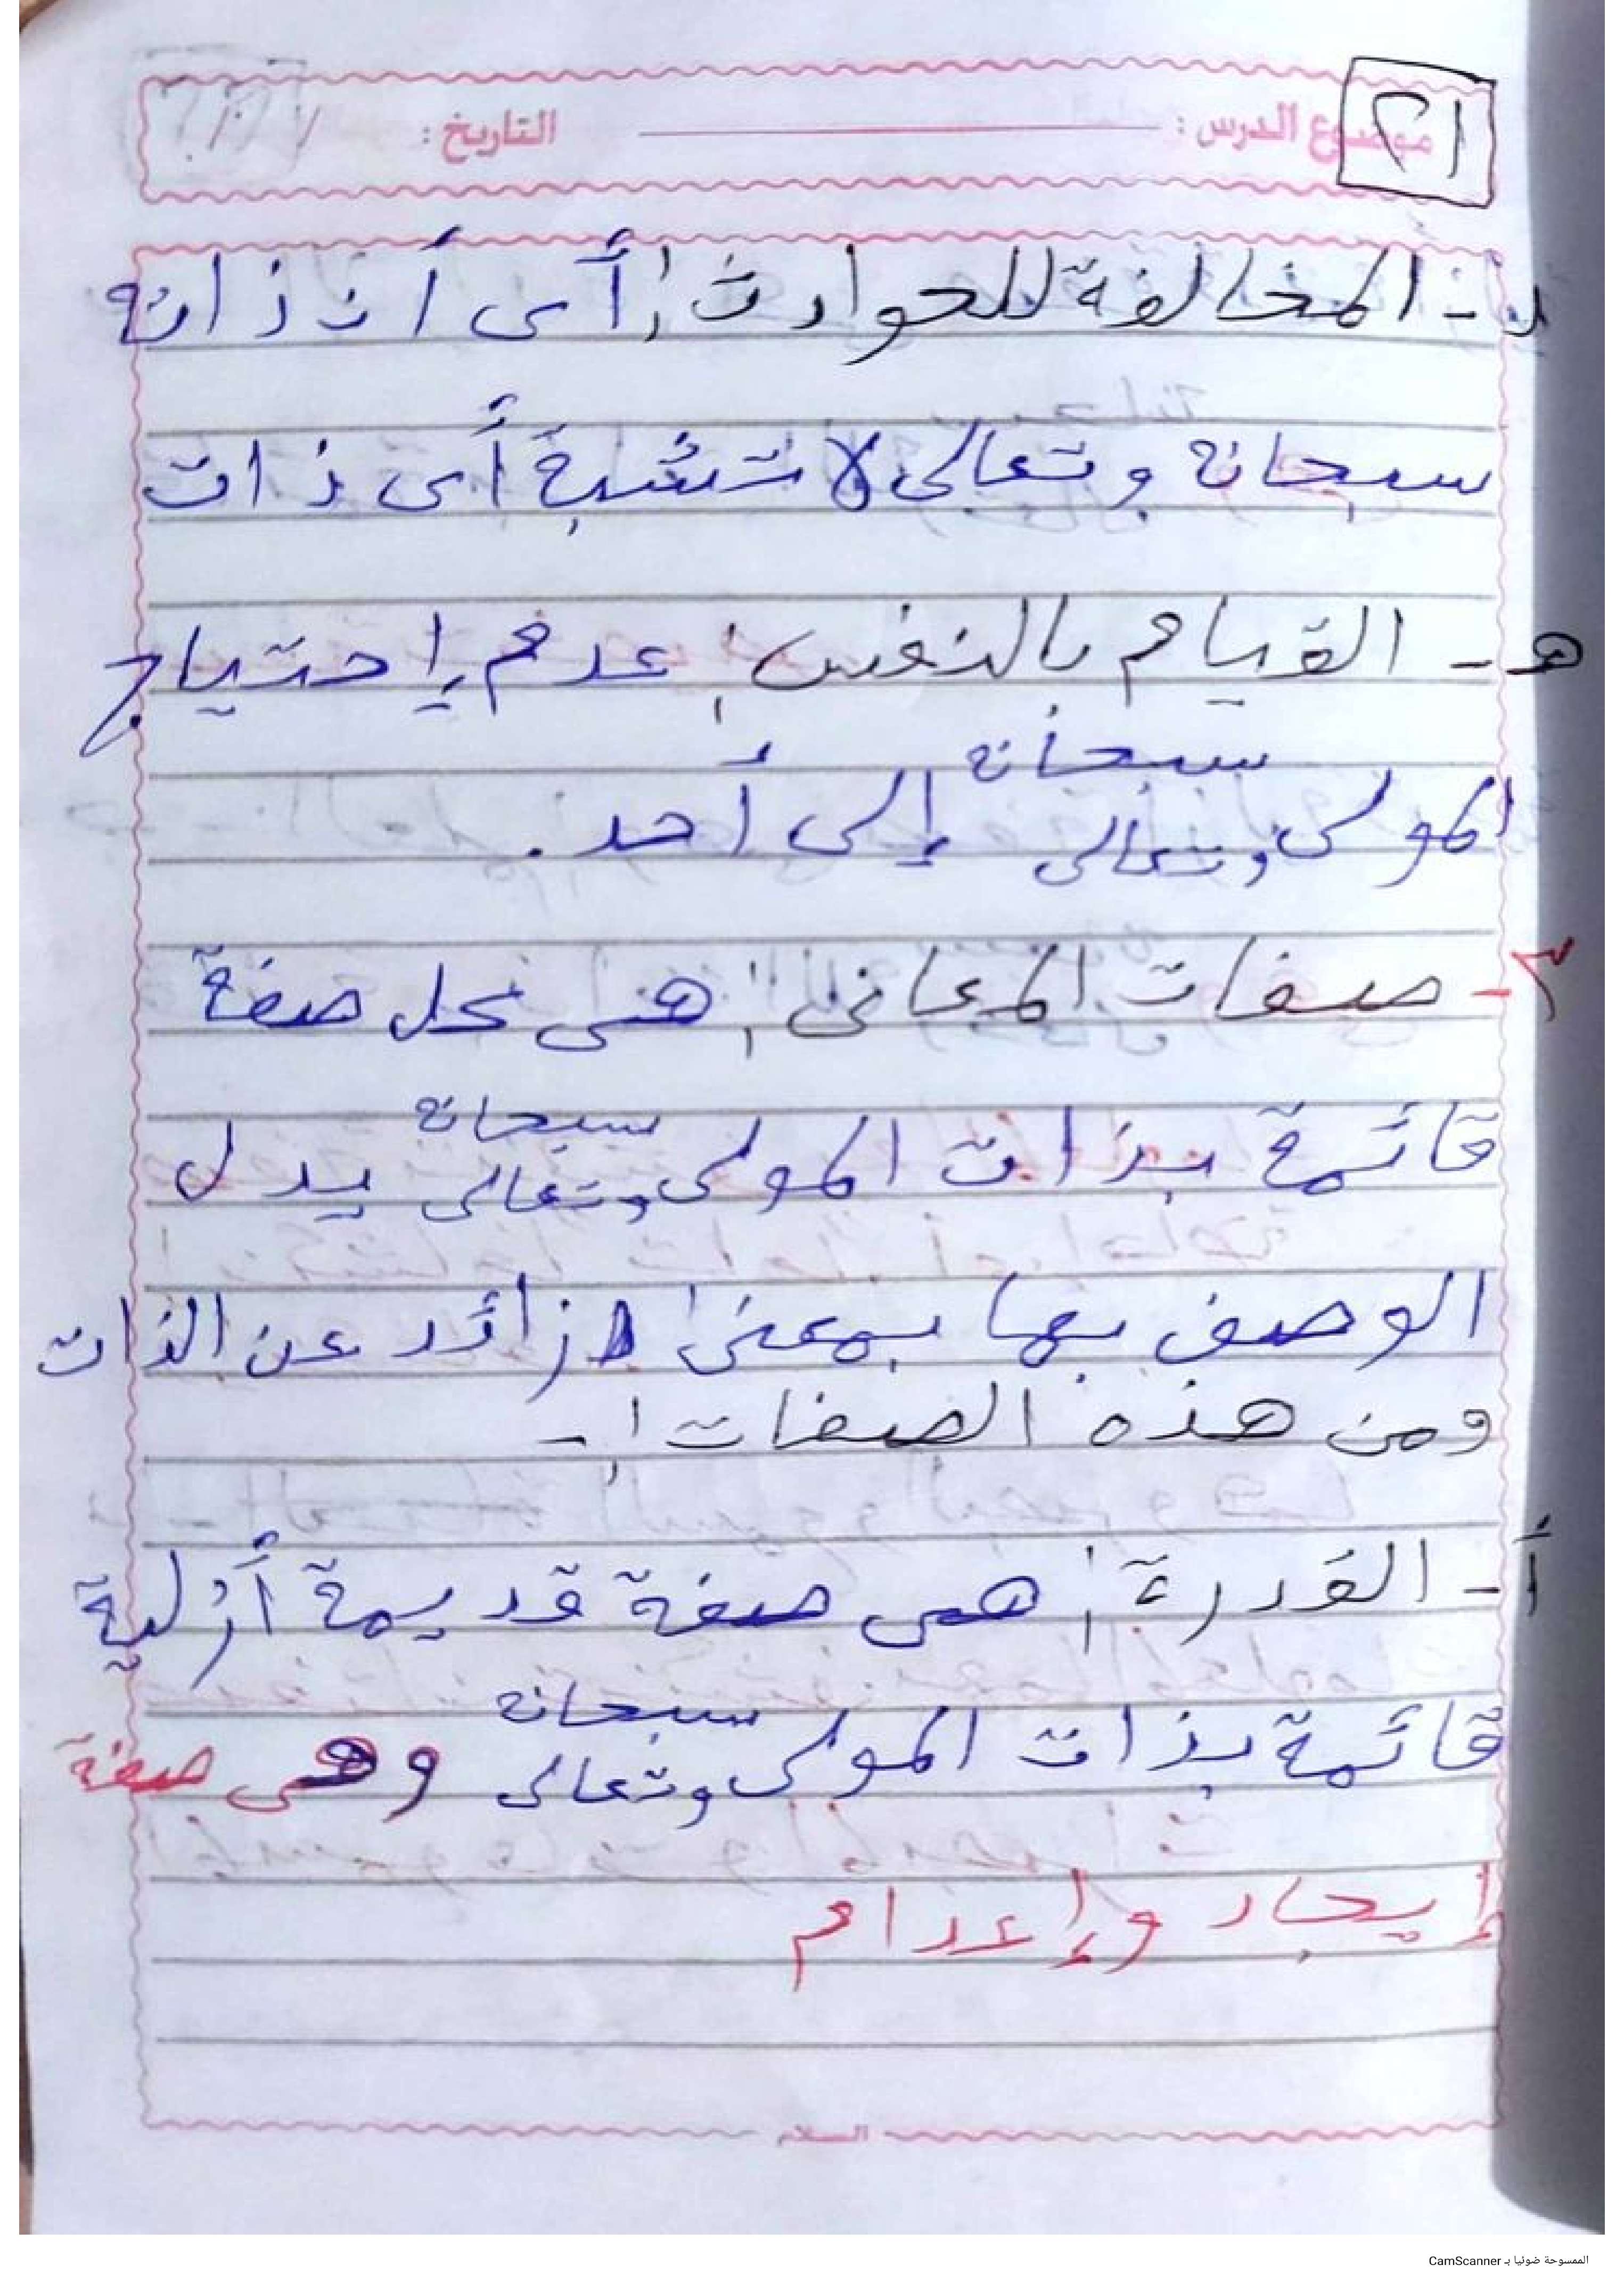 ٢١
موضوع الدرس : التاريخ : / /
د - المخالفة للحوادث : أى أن ذاته
سبحانه وتعالى لا تشبة أى ذات
هـ - القيام بالنفس : عدم إحتياج
المولى سبحانه وتعالى إلى أحد .
٣ - صفات المعانى : هى كل صفة
قائمة بذات المولى سبحانه وتعالى يدل
الوصف بها بمعنى زائد عن الذات
ومن هذه الصفات : -
أ - القدرة : هى صفة قديمة أزلية
قائمة بذات المولى سبحانه وتعالى وهى صفة
إيجاد وإعدام
السلام
الممسوحة ضوئيا بـ CamScanner